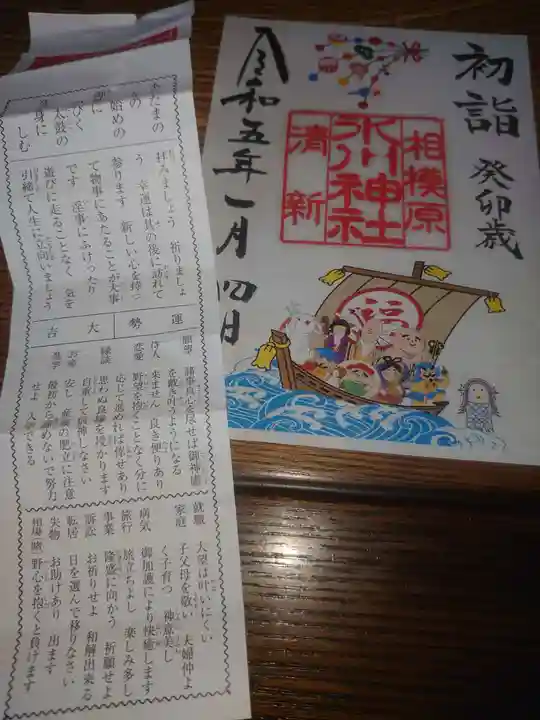 初詣
癸卯歳
相模原
氷川神社
清新
令和五年一月四日
福
たまの
の
始めの
に
びく
太鼓の
身に
しむ
拝みましょう 祈りましょ
う 幸運は其の後に訪れて
参ります 新しい心を持っ
て物事にあたることが大事
です 淫事にふけったり
遊びに走ることなく 気を
引緒て人生に立向いましょう
運勢
大吉
願望 諸事真心を尽せば御神徳
を戴き叶うようになる
待人 来ません 良き便りあり
恋愛 野望を抱くことなく分に
応じて進めれば倖せあり
縁談 思わぬ良縁を授かります
お産 安し 産後の肥立に注意
進学 最初から諦めないで努力
せよ 入学できる
就職 大望は叶いにくい
家庭 子父母を敬い 夫婦仲よ
く子育つ 神意美し
病気 御加護により快癒します
旅行 旅立ちよし 楽しみ多し
事業 隆盛に向かう 祈願せよ
訴訟 お祈りせよ 和解出来る
転居 日を選んで移りなさい
失物 お助けあり 出ます
相場(賭) 野心を抱くと負けます